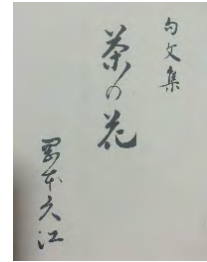 句文集
茶の花
岡本久江